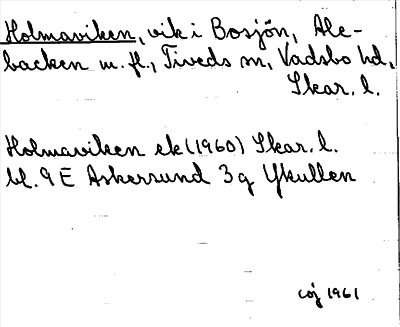 Holmaviken, vik i Bosjön, Ale-
backen m. fl., Tiveds sn, Vadsbo hd,
Skar. l.
Holmaviken ek (1960) Skar. l.
bl. 9 E Askersund 3 g Ykullen
coj 1961